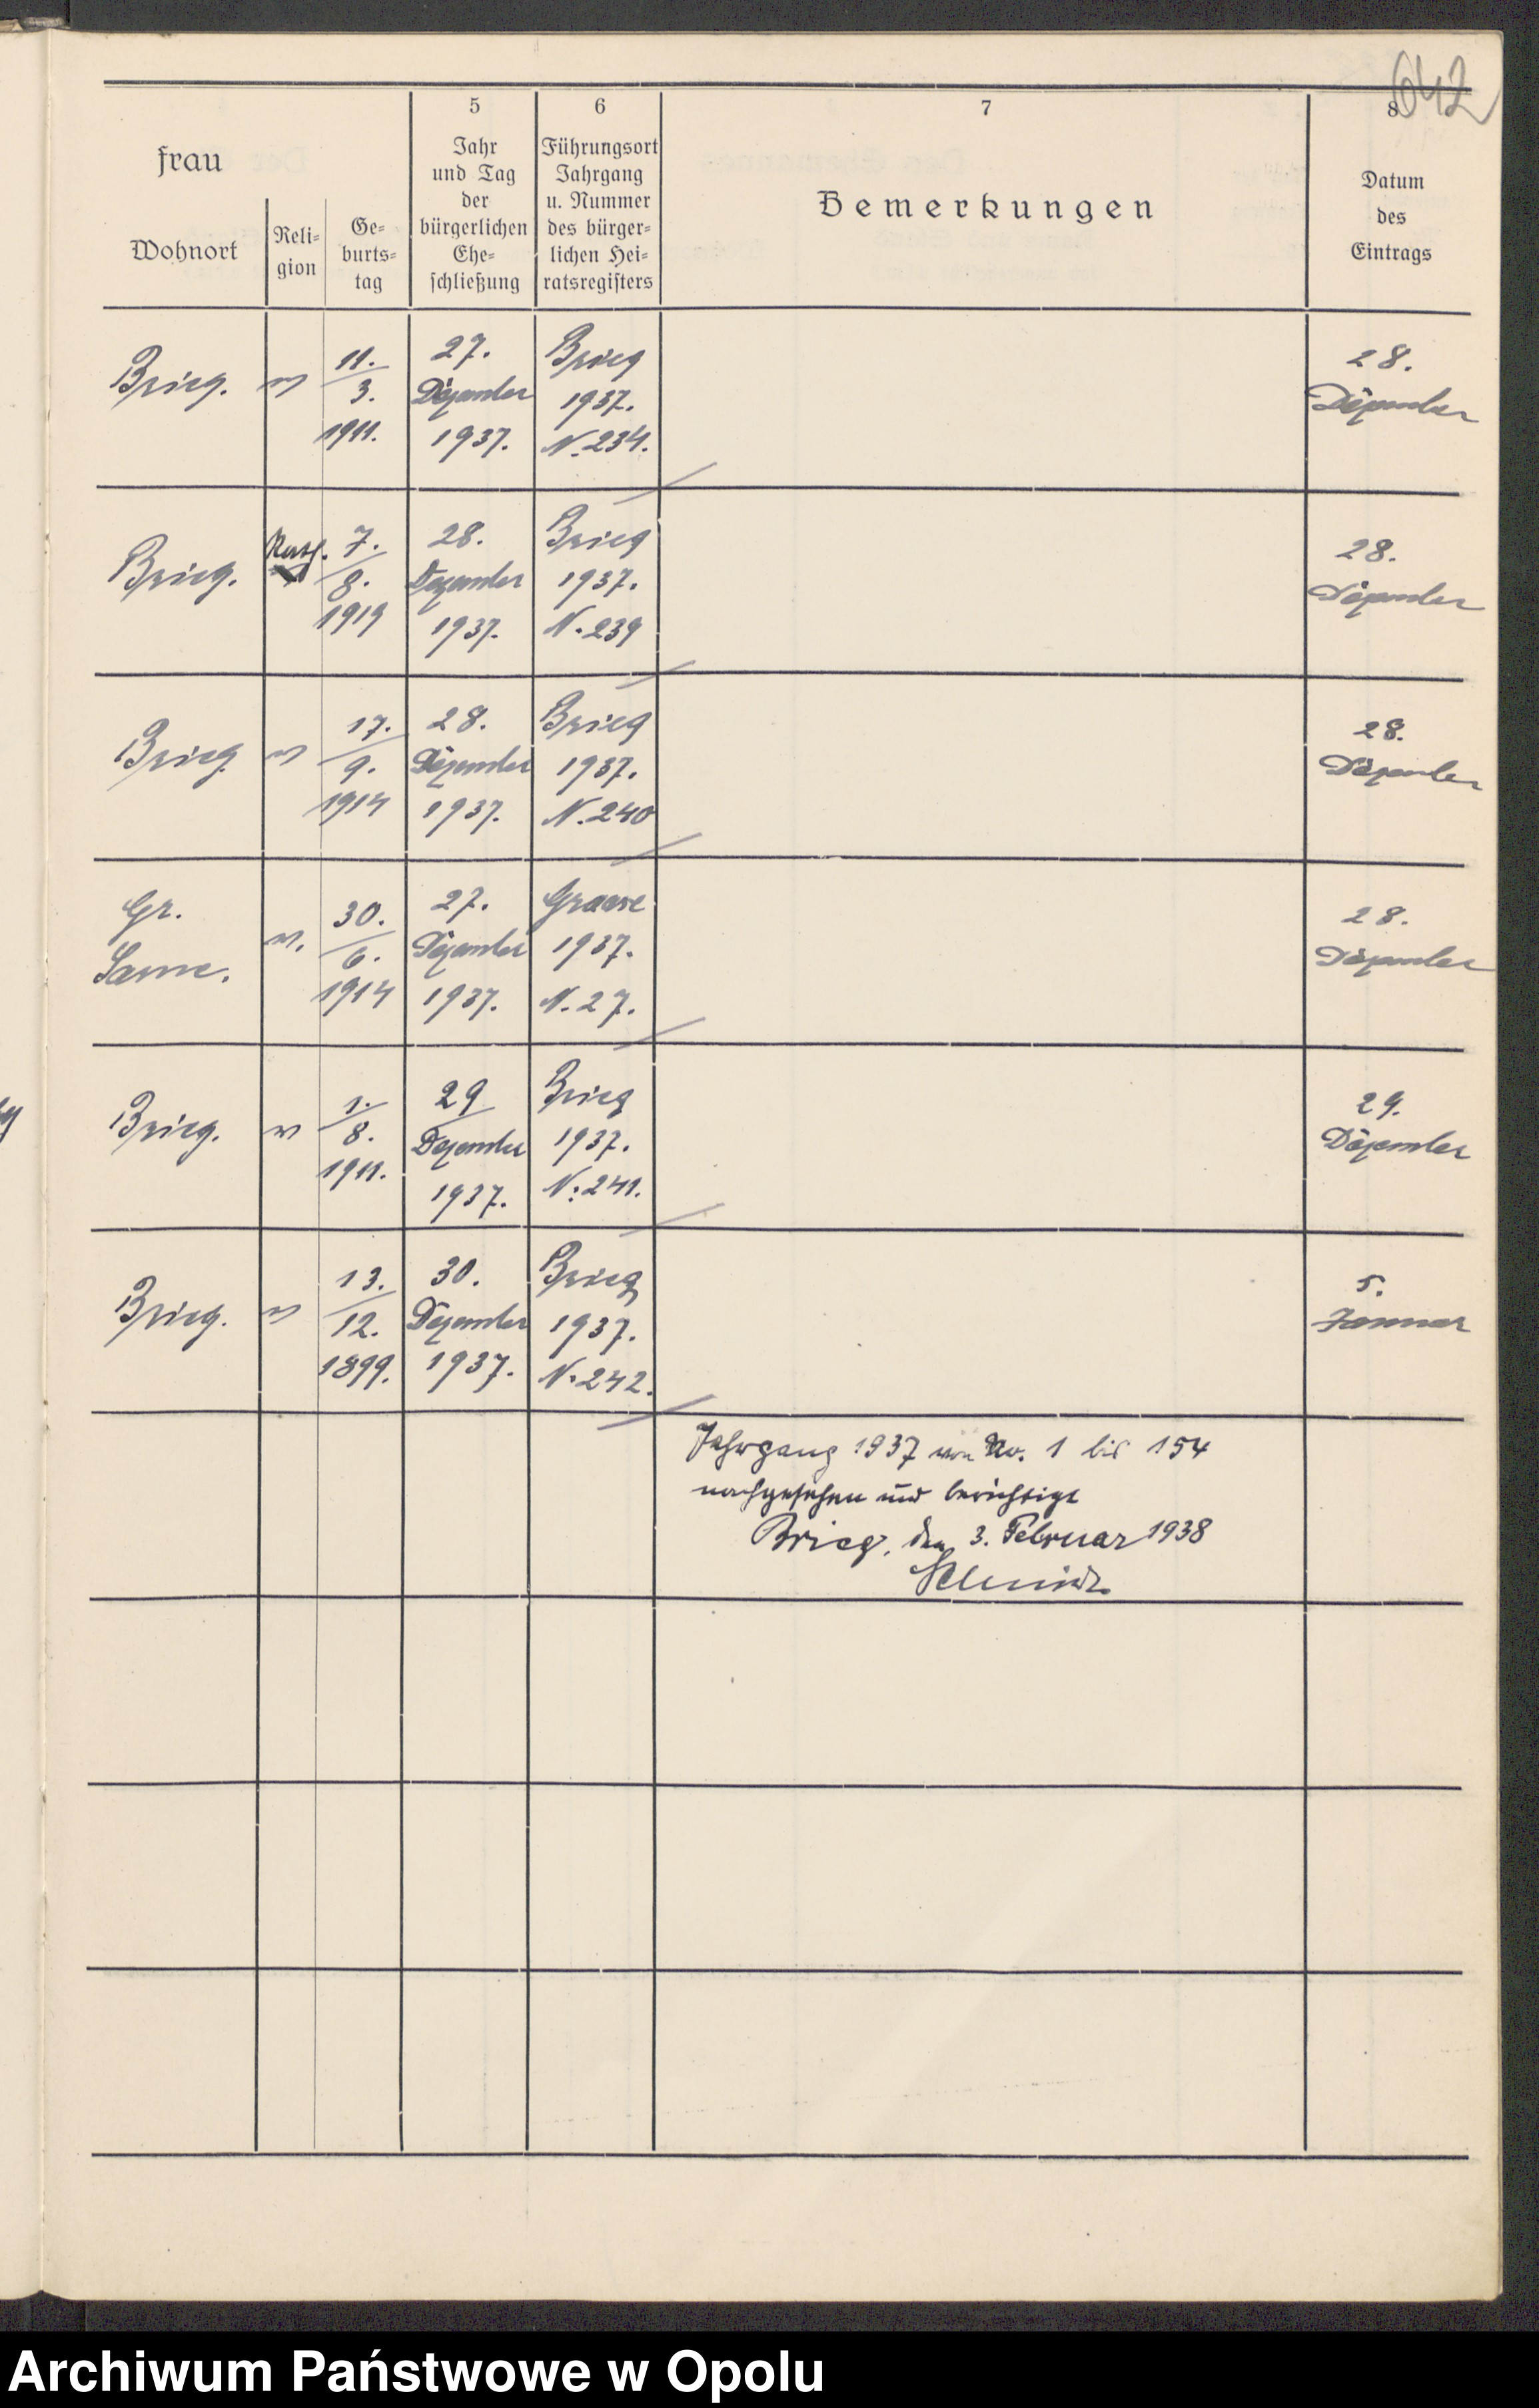 642
frau
Wohnort
Reli-
gion
Ge-
burts-
tag
5
Jahr
und Tag
der
bürgerlichen
Ehe-
schließung
6
Führungsort
Jahrgang
u. Nummer
des bürger-
lichen Hei-
ratsregisters
7
Bemerkungen
8
Datum
des
Eintrags
Brieg.
11.
3.
1911.
27.
Dezember
1937.
Brieg
1937.
N. 234.
28.
Dezember
Brieg.
Kath.
7.
8.
1919
28.
Dezember
1937.
Brieg
1937.
N. 239
28.
Dezember
Brieg.
17.
9.
1914
28.
Dezember
1937.
Brieg
1937.
N. 240
28.
Dezember
Gr.
30.
6.
1914
27.
Dezember
1937.
Graase
1937.
N. 27.
28.
Dezember
Brieg.
1.
8.
1911.
29
Dezember
1937.
Brieg
1937.
N. 241.
29.
Dezember
Brieg.
13.
12.
1899.
30.
Dezember
1937.
Brieg
1937.
N. 242.
5.
Januar
Jahrgang 1937 von No. 1 bis 154
nachgesehen und berichtigt
Brieg, den 3. Februar 1938
Schmidt
Archiwum Państwowe w Opolu